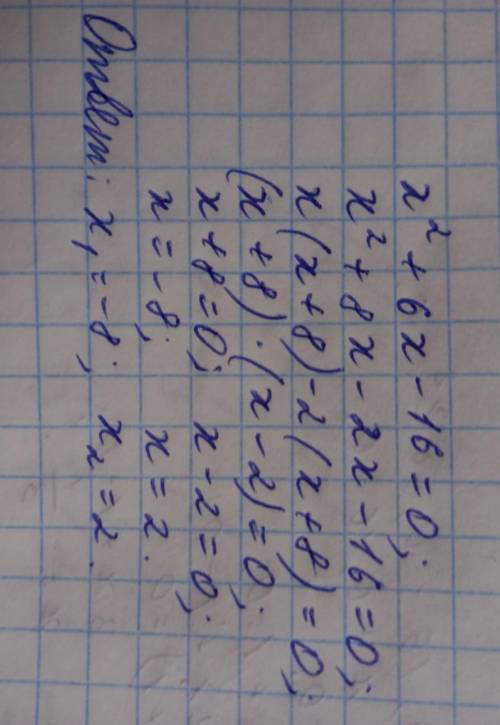 x² + 6x - 16 = 0;
x² + 8x - 2x - 16 = 0;
x(x+8) - 2(x+8) = 0;
(x+8)·(x-2) = 0;
x+8=0; x-2=0;
x=-8; x=2.
Ответ: x₁=-8; x₂=2.